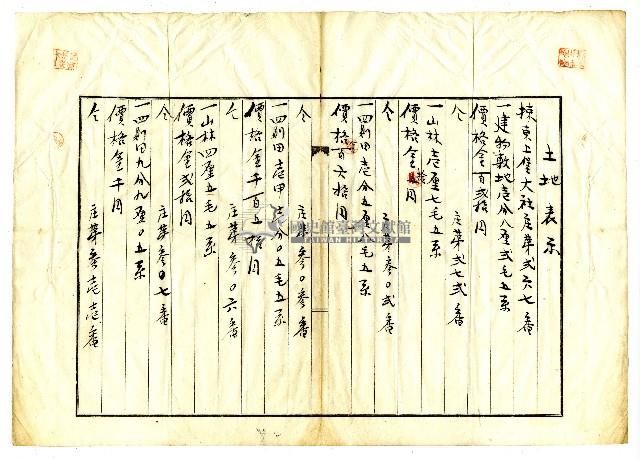 土地表示
揀東上堡大社庄第弐六七番
一建物敷地壱分八厘弐毛五糸
價格金百弐拾円
仝 庄第弐七弐番
一山林壱厘七毛五糸
價格金 円
仝 庄第参〇弐番
一四則田壱分五厘〇五糸
價格百六拾円
仝 庄第参〇参番
一四則田壱甲壱分〇五毛五糸
價格金千百五拾円
仝 庄第参〇六番
一山林四厘五毛五糸
價格金弐拾円
仝 庄第参〇七番
一四則田九分九厘〇五糸
價格金千円
仝 庄第参壱壱番
國史館臺灣文獻館
TAIWAN HISTORICA